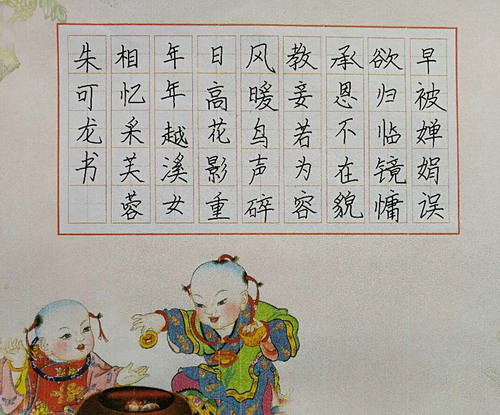 早被婵娟误
欲归临镜慵
承恩不在貌
教妾若为容
风暖鸟声碎
日高花影重
年年越溪女
相忆采芙蓉
朱可龙书